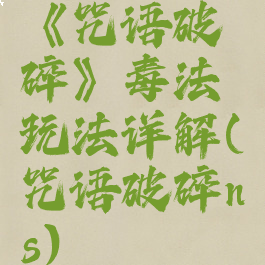 《咒语破
碎》毒法
玩法详解(
咒语破碎n
s)